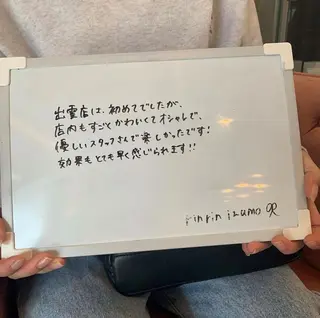 出雲店は、初めてでしたが、
店内もすごくかわいくてオシャレで、
優しいスタッフさんで楽しかったです!
効果もとても早く感じられます!!
rinrin izumo